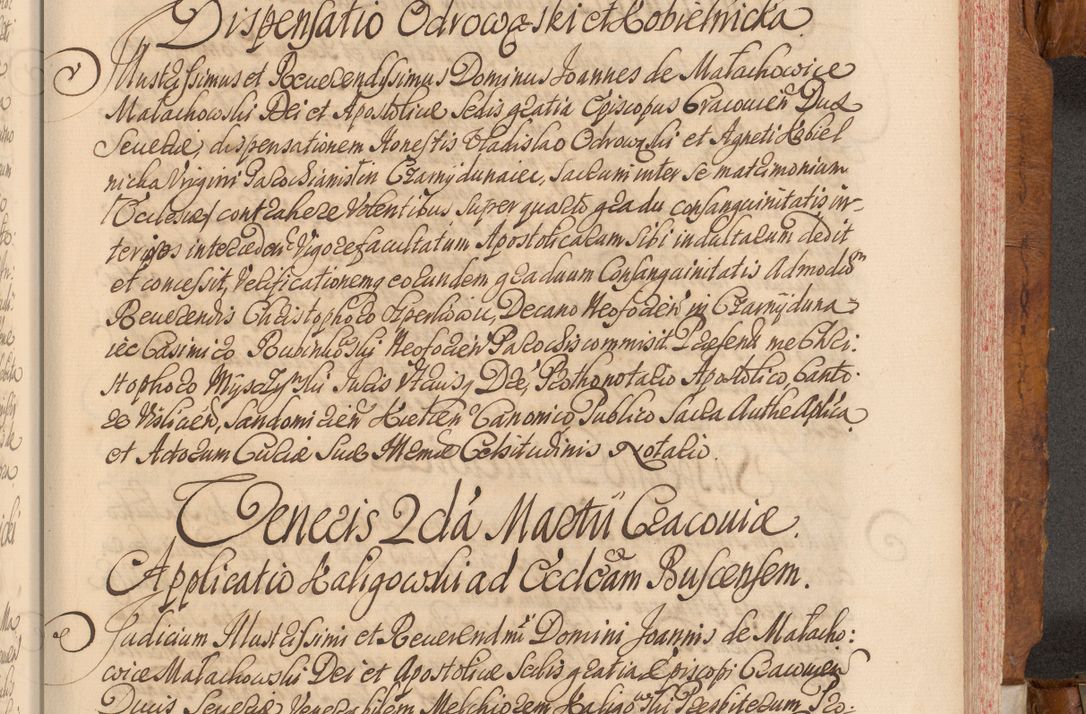 Dispensatio Odrowąski et Kobielnicka.
Illustrissimus et Reuerendissimus Dominus Joannes de Małachowice
Małachowski Dei et Apostolicae Sedis gratia Episcopus Cracovien Dux
Severiae, dispensationem Honestis Vladislao Odrowąski et Agneti Kobiel
nicka Virgini Parochianis in Czarnydunaiec, Sacrum inter se matrimonium
Ecclesiae contrahere volentibus, super quarto gradu consanguinitatis in-
teripos interceden Vigore facultatum Apostolicarum Sibi indultarum dedit
et concessit, Verificationemq eorundem graduum Consanguinitatis Admodum
Reuerendis Christophoro Decano Neoforien in Czarnyduna-
iec Casimiro Neoforien Parochis commisit Praesente me Chri:
stophoro Juris Vtriusq Dre, Prothonotario Apostolico, Canto:
re Vislicen, Sandomirien Kielcen Canonico, Publico Sacra Authe Aplica
et Actorum Curiae Suae Celsitudinis Notario.
Veneris 2dá Martii Cracoviae.
Applicatio Kaligowski ad Ecclesiam Buscensem.
Judicium Illustrissimi et Reuerendmi Domini Joannis de Małacho:
wice Małachowski Dei et Apostolicae Sedis gratia Episcopi Cracovien
Ducis Severiae Venerabilem Melchiorem Kaligowski Presbiterum Pro-